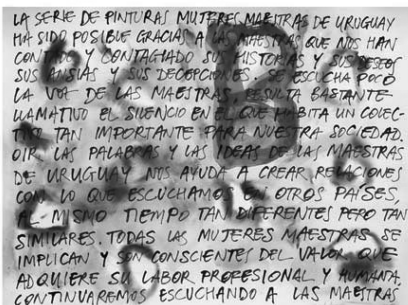 LA SERIE DE PINTURAS MUJERES MAESTRAS DE URUGUAY
HA SIDO POSIBLE GRACIAS A LAS MAESTRAS QUE NOS HAN
CONTADO Y CONTAGIADO SUS HISTORIAS Y SUS DESEOS
SUS ANSIAS Y SUS DECEPCIONES. SE ESCUCHA POCO
LA VOZ DE LAS MAESTRAS. RESULTA BASTANTE
LLAMATIVO EL SILENCIO EN EL QUE HABITA UN COLEC-
TIVO TAN IMPORTANTE PARA NUESTRA SOCIEDAD.
OIR LAS PALABRAS Y LAS IDEAS DE LAS MAESTRAS
DE URUGUAY NOS AYUDA A CREAR RELACIONES
CON LO QUE ESCUCHAMOS EN OTROS PAÍSES,
AL MISMO TIEMPO TAN DIFERENTES PERO TAN
SIMILARES. TODAS LAS MUJERES MAESTRAS SE
IMPLICAN Y SON CONSCIENTES DEL VALOR QUE
ADQUIERE SU LABOR PROFESIONAL Y HUMANA,
CONTINUAREMOS ESCUCHANDO A LAS MAESTRAS